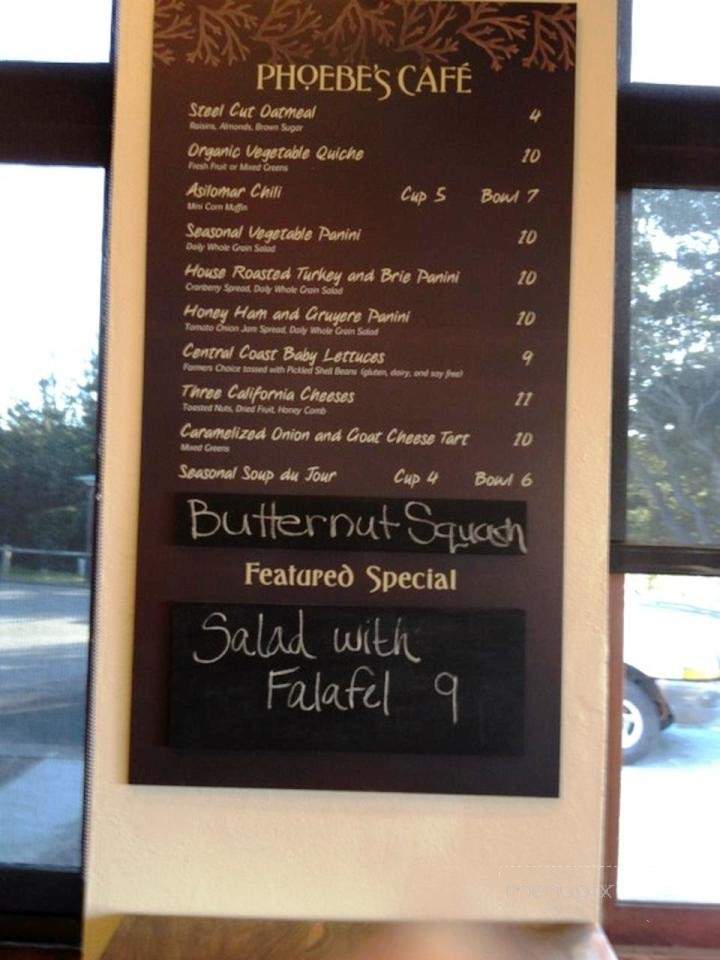 PHOEBE'S CAFÉ
Steel Cut Oatmeal 4
Raisins, Almonds, Brown Sugar
Organic Vegetable Quiche 10
Fresh Fruit or Mixed Greens
Asilomar Chili Cup 5 Bowl 7
Mini Corn Muffin
Seasonal Vegetable Panini 10
Daily Whole Grain Salad
House Roasted Turkey and Brie Panini 10
Cranberry Spread, Daily Whole Grain Salad
Honey Ham and Gruyere Panini 10
Tomato Onion Jam Spread, Daily Whole Grain Salad
Central Coast Baby Lettuces 9
Farmers Choice tossed with Pickled Shell Beans (gluten, dairy, and soy free)
Three California Cheeses 11
Toasted Nuts, Dried Fruit, Honey Comb
Caramelized Onion and Goat Cheese Tart 10
Mixed Greens
Seasonal Soup du Jour Cup 4 Bowl 6
Butternut Squash
Featured Special
Salad with
Falafel 9
menupix